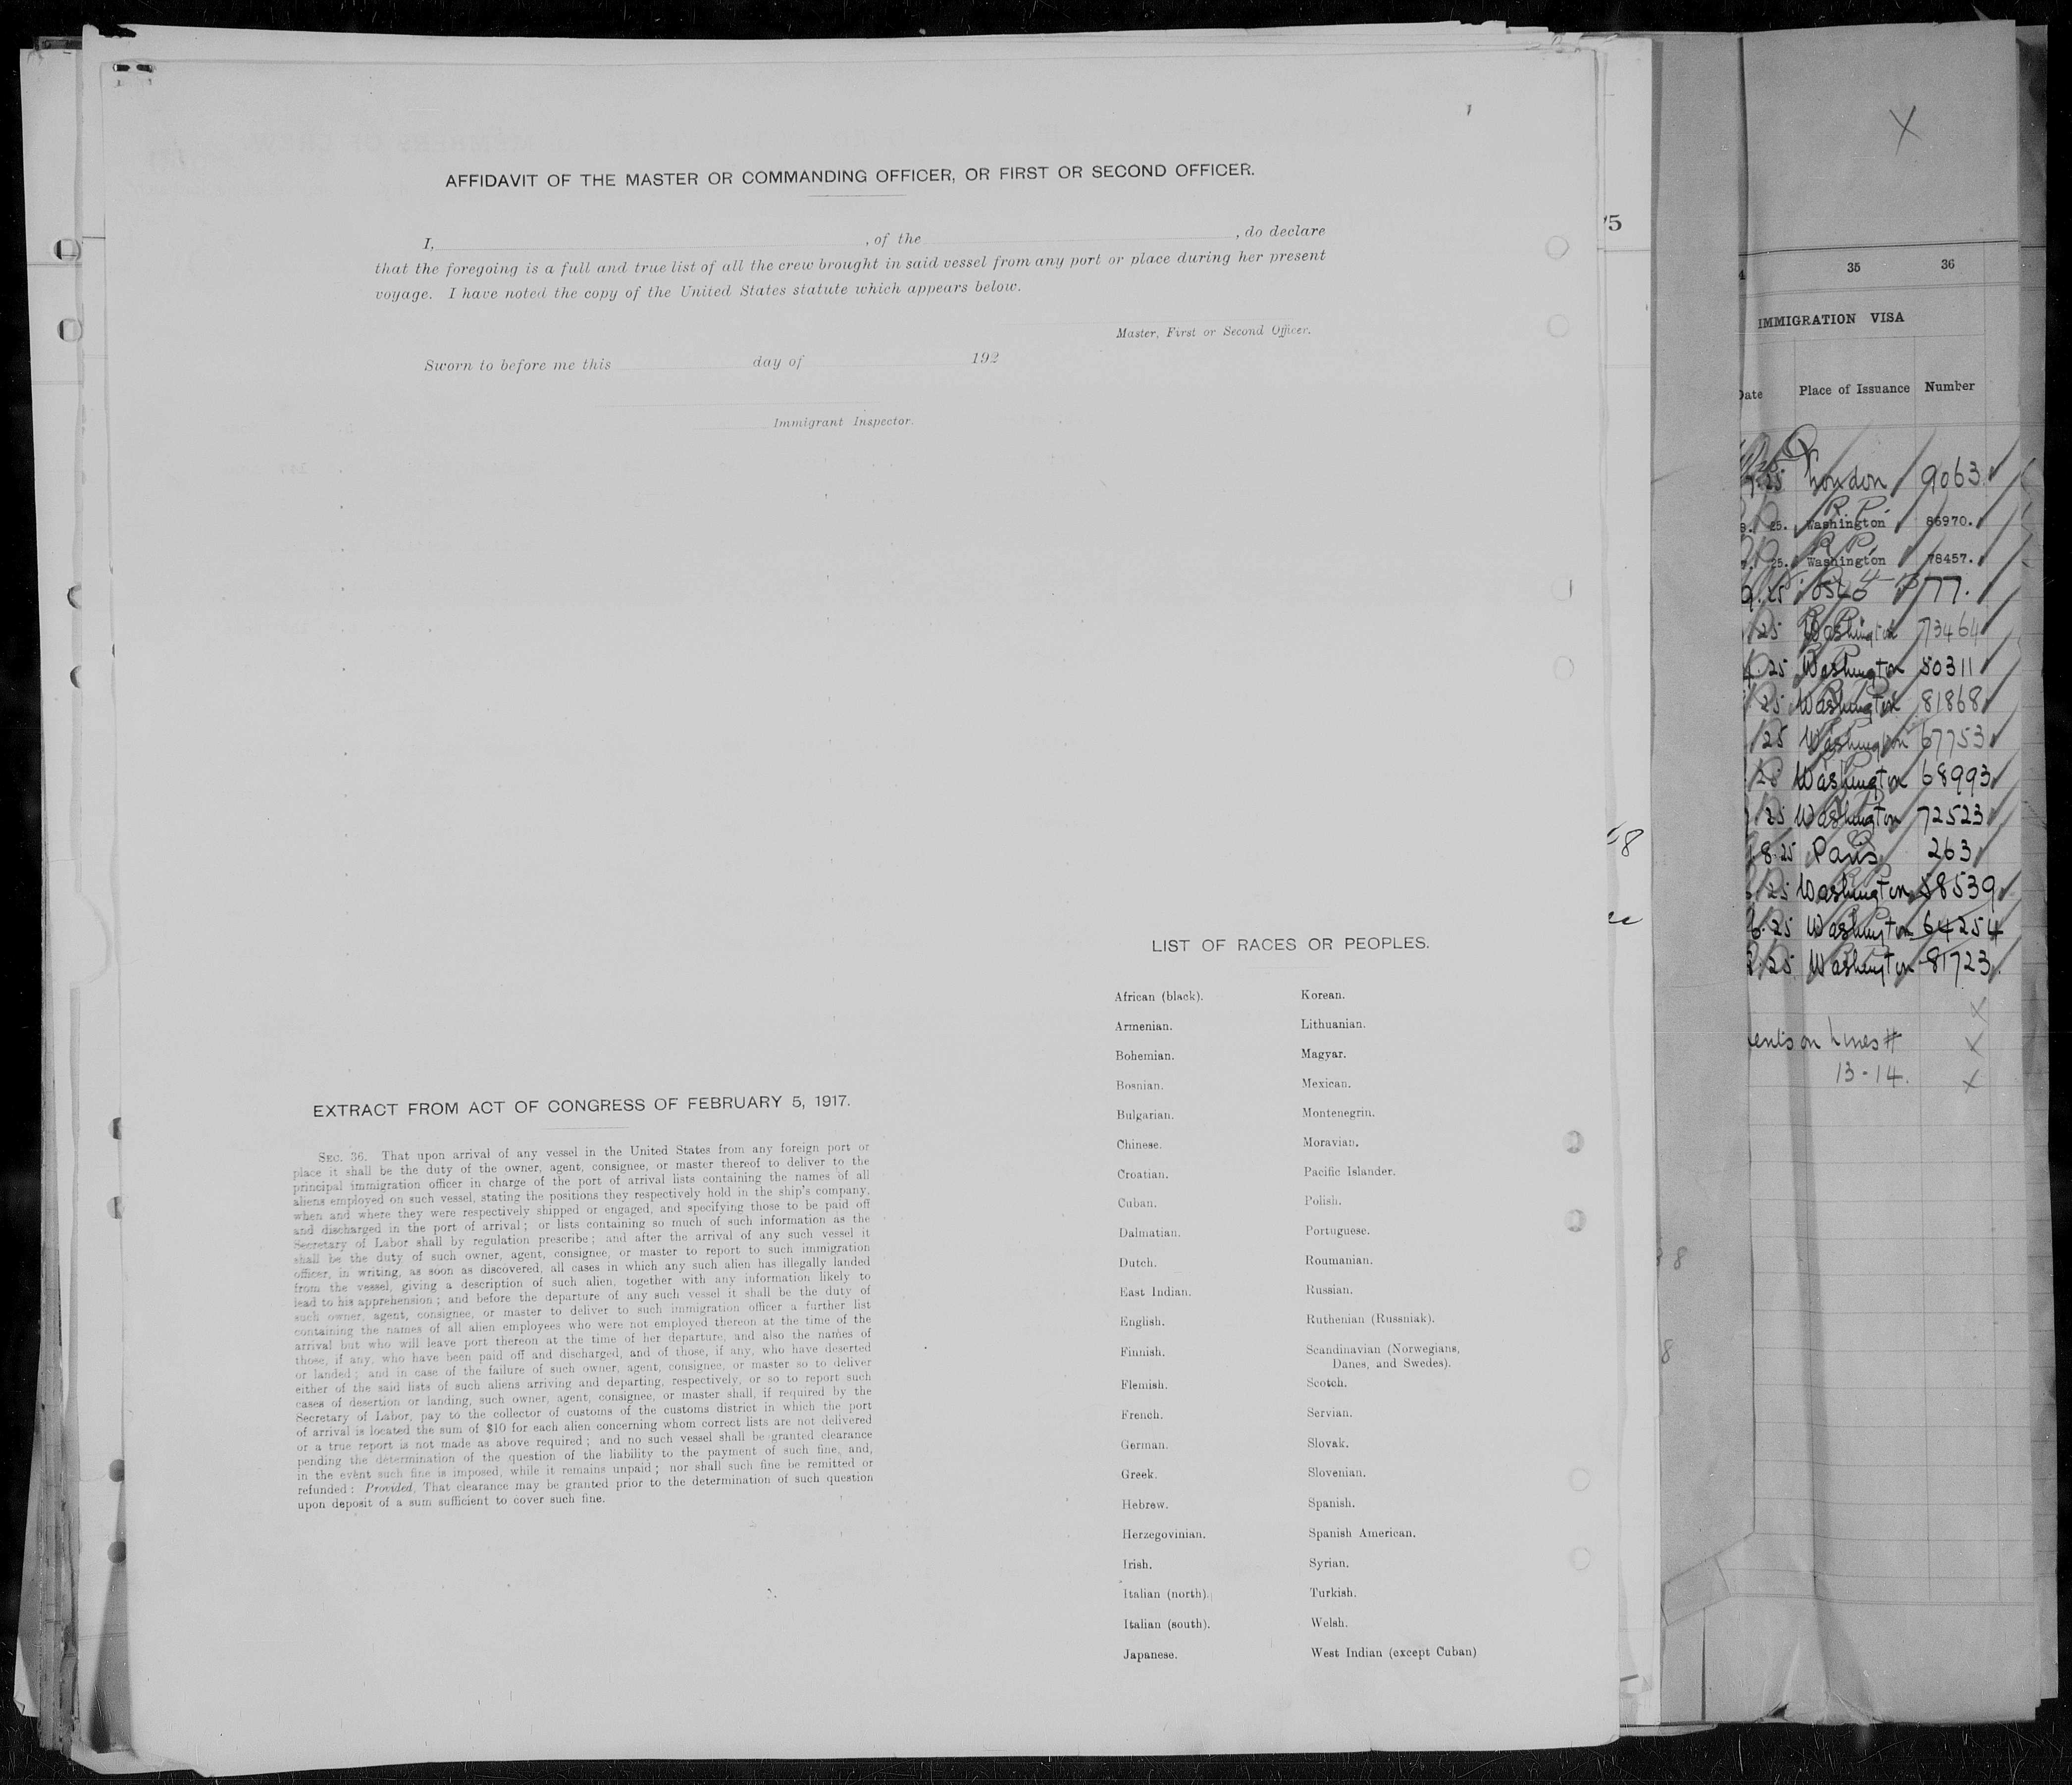 AFFIDAVIT OF THE MASTER OR COMMANDING OFFICER, OR FIRST OR SECOND OFFICER.
I, , of the , do declare
that the foregoing is a full and true list of all the crew brought in said vessel from any port or place during her present
voyage. I have noted the copy of the United States statute which appears below.
Master, First or Second Officer.
Sworn to before me this day of 192
Immigrant Inspector.
EXTRACT FROM ACT OF CONGRESS OF FEBRUARY 5, 1917.
SEC. 36. That upon arrival of any vessel in the United States from any foreign port or
place it shall be the duty of the owner, agent, consignee, or master thereof to deliver to the
principal immigration officer in charge of the port of arrival lists containing the names of all
aliens employed on such vessel, stating the positions they respectively hold in the ship's company,
when and where they were respectively shipped or engaged, and specifying those to be paid off
and discharged in the port of arrival; or lists containing so much of such information as the
Secretary of Labor shall by regulation prescribe; and after the arrival of any such vessel it
shall be the duty of such owner, agent, consignee, or master to report to such immigration
officer, in writing, as soon as discovered, all cases in which any such alien has illegally landed
from the vessel, giving a description of such alien, together with any information likely to
lead to his apprehension; and before the departure of any such vessel it shall be the duty of
such owner, agent, consignee, or master to deliver to such immigration officer a further list
containing the names of all alien employees who were not employed thereon at the time of the
arrival but who will leave port thereon at the time of her departure, and also the names of
those, if any, who have been paid off and discharged, and of those, if any, who have deserted
or landed; and in case of the failure of such owner, agent, consignee, or master so to deliver
either of the said lists of such aliens arriving and departing, respectively, or so to report such
cases of desertion or landing, such owner, agent, consignee, or master shall, if required by the
Secretary of Labor, pay to the collector of customs of the customs district in which the port
of arrival is located the sum of $10 for each alien concerning whom correct lists are not delivered
or a true report is not made as above required; and no such vessel shall be granted clearance
pending the determination of the question of the liability to the payment of such fine, and,
in the event such fine is imposed, while it remains unpaid; nor shall such fine be remitted or
refunded: Provided, That clearance may be granted prior to the determination of such question
upon deposit of a sum sufficient to cover such fine.
LIST OF RACES OR PEOPLES.
African (black). Korean.
Armenian. Lithuanian.
Bohemian. Magyar.
Bosnian. Mexican.
Bulgarian. Montenegrin.
Chinese. Moravian.
Croatian. Pacific Islander.
Cuban. Polish.
Dalmatian. Portuguese.
Dutch. Roumanian.
East Indian. Russian.
English. Ruthenian (Russniak).
Finnish. Scandinavian (Norwegians,
Danes, and Swedes).
Flemish. Scotch.
French. Servian.
German. Slovak.
Greek. Slovenian.
Hebrew. Spanish.
Herzegovinian. Spanish American.
Irish. Syrian.
Italian (north). Turkish.
Italian (south). Welsh.
Japanese. West Indian (except Cuban)
35 36
IMMIGRATION VISA
Date Place of Issuance Number
25 London 9063
R.P.
25. Washington 86970.
R.P.
25. Washington 78457.
25 Oslo 77.
25 Washington 73464
25 Washington 50311
25 Washington 81868
25 Washington 67753
25 Washington 68993
25 Washington 72523
8.25 Paris 263
25 Washington 58539
25 Washington 64254
25 Washington 81723
on Lines #
13-14.